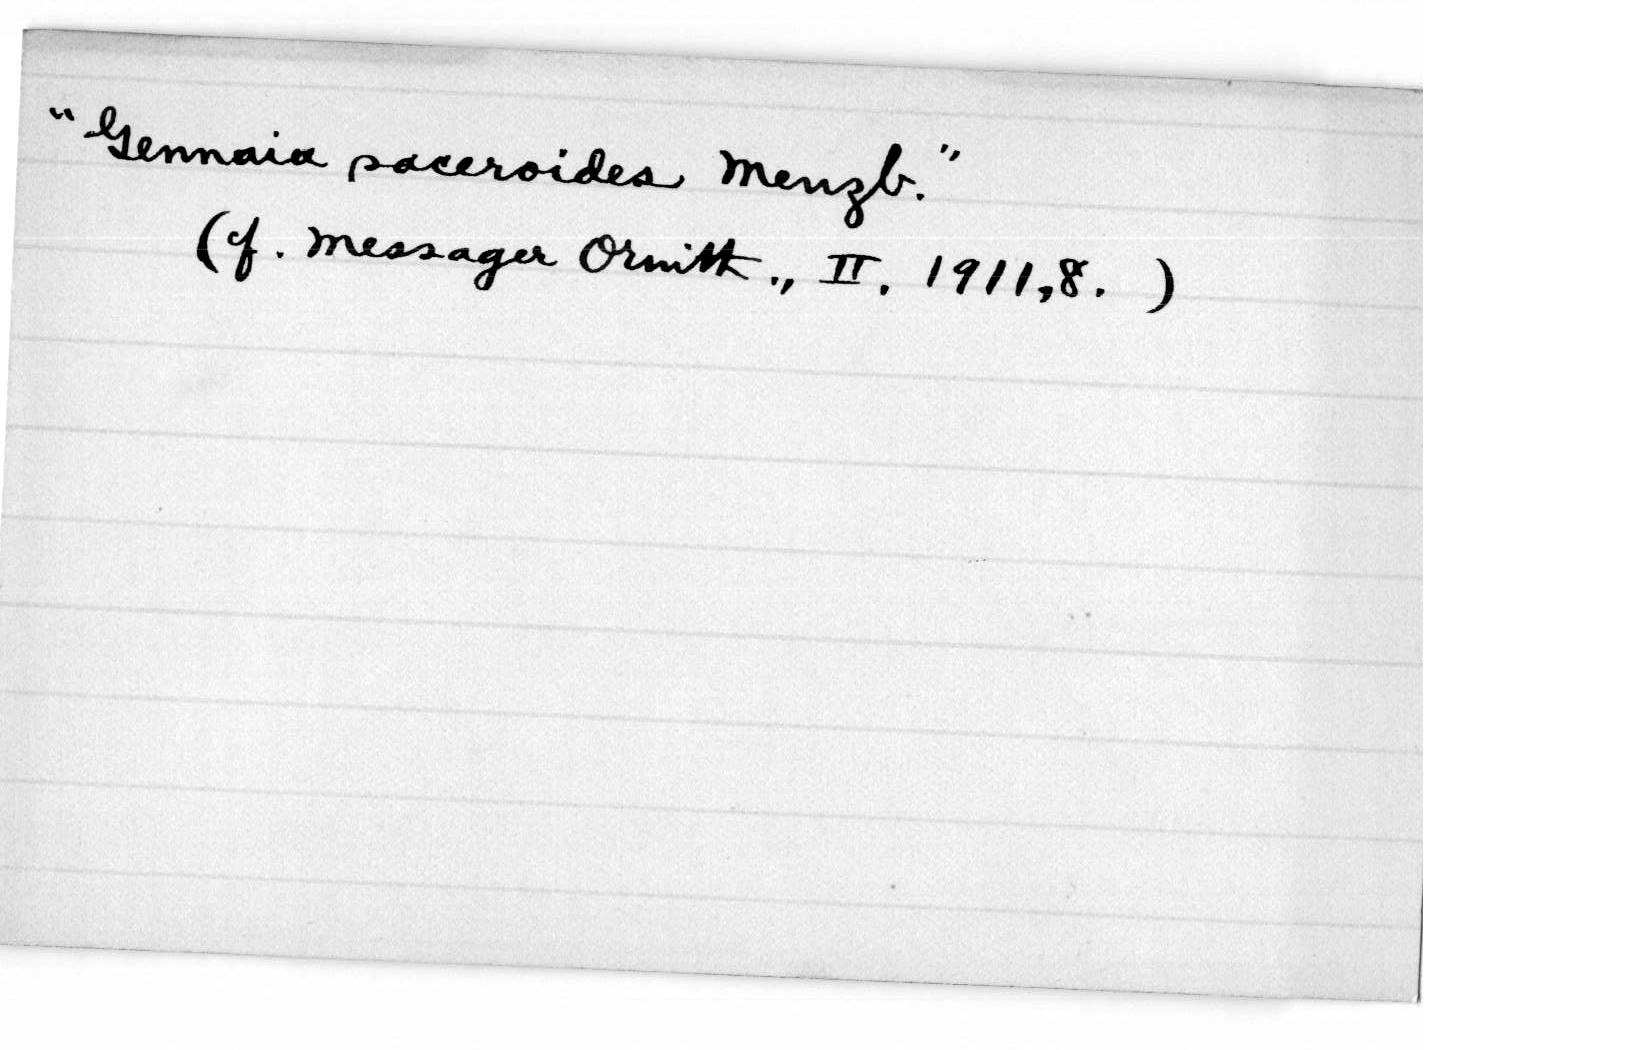 "Gennaia saceroides Menzb."
(cf. Messager Ornith., II. 1911,8. )